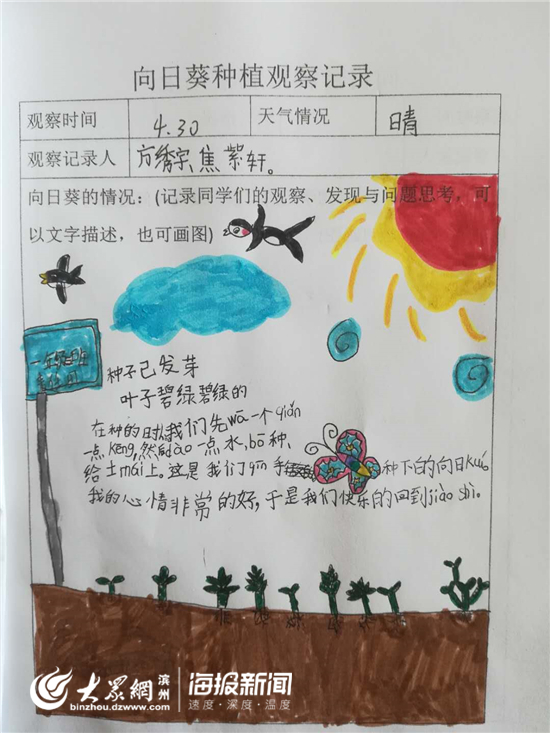 向日葵种植观察记录
观察时间 4.30 天气情况 晴
观察记录人 方绣宗、焦紫轩。
向日葵的情况：(记录同学们的观察、发现与问题思考，可
以文字描述，也可画图)
种子已发芽
叶子碧绿碧绿的
在种的时候，我们先wā一个qiǎn
一点keng，然后dào一点水，bō种，
给土mái上。这是我们qīn手种下的向日kuí
我的心情非常的好，于是我们快乐的回到jiào shì。
大众網 滨州 海报新闻
binzhou.dzwww.com 速度·深度·温度